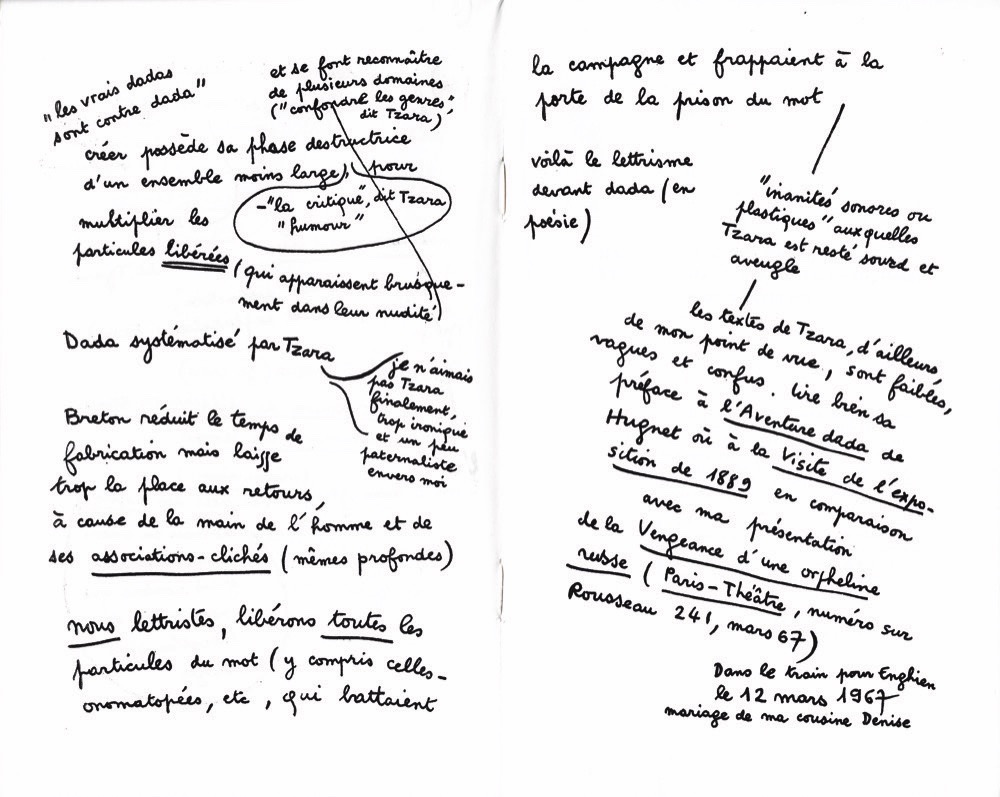 "les vrais dadas
sont contre dada"
et se font reconnaître
de plusieurs domaines
("confondre les genres",
dit Tzara)
créer possède sa phase destructrice
d'un ensemble moins large), pour
-"la critique", dit Tzara
"humour"
multiplier les
particules libérées
(qui apparaissent brusque-
ment dans leur nudité)
Dada systématisé par Tzara
je n'aimais
pas Tzara
finalement,
trop ironique
et un peu
paternaliste
envers moi
Breton réduit le temps de
fabrication mais laisse
trop la place aux retours,
à cause de la main de l'homme et de
ses associations-clichés (mêmes profondes)
nous lettristes, libérons toutes les
particules du mot (y compris celles-
onomatopées, etc, qui battaient
la campagne et frappaient à la
porte de la prison du mot
voilà le lettrisme
devant dada (en
poésie)
"inanités sonores ou
plastiques" auxquelles
Tzara est resté sourd et
aveugle
les textes de Tzara, d'ailleurs,
de mon point de vue, sont faibles,
vagues et confus. lire bien sa
préface à l'Aventure dada de
Hugnet où à la Visite de l'expo-
sition de 1889 en comparaison
avec ma présentation
de la Vengeance d'une orpheline
russe (Paris-Théâtre, numéro sur
Rousseau 241, mars 67)
Dans le train pour Enghien
le 12 mars 1967
mariage de ma cousine Denise